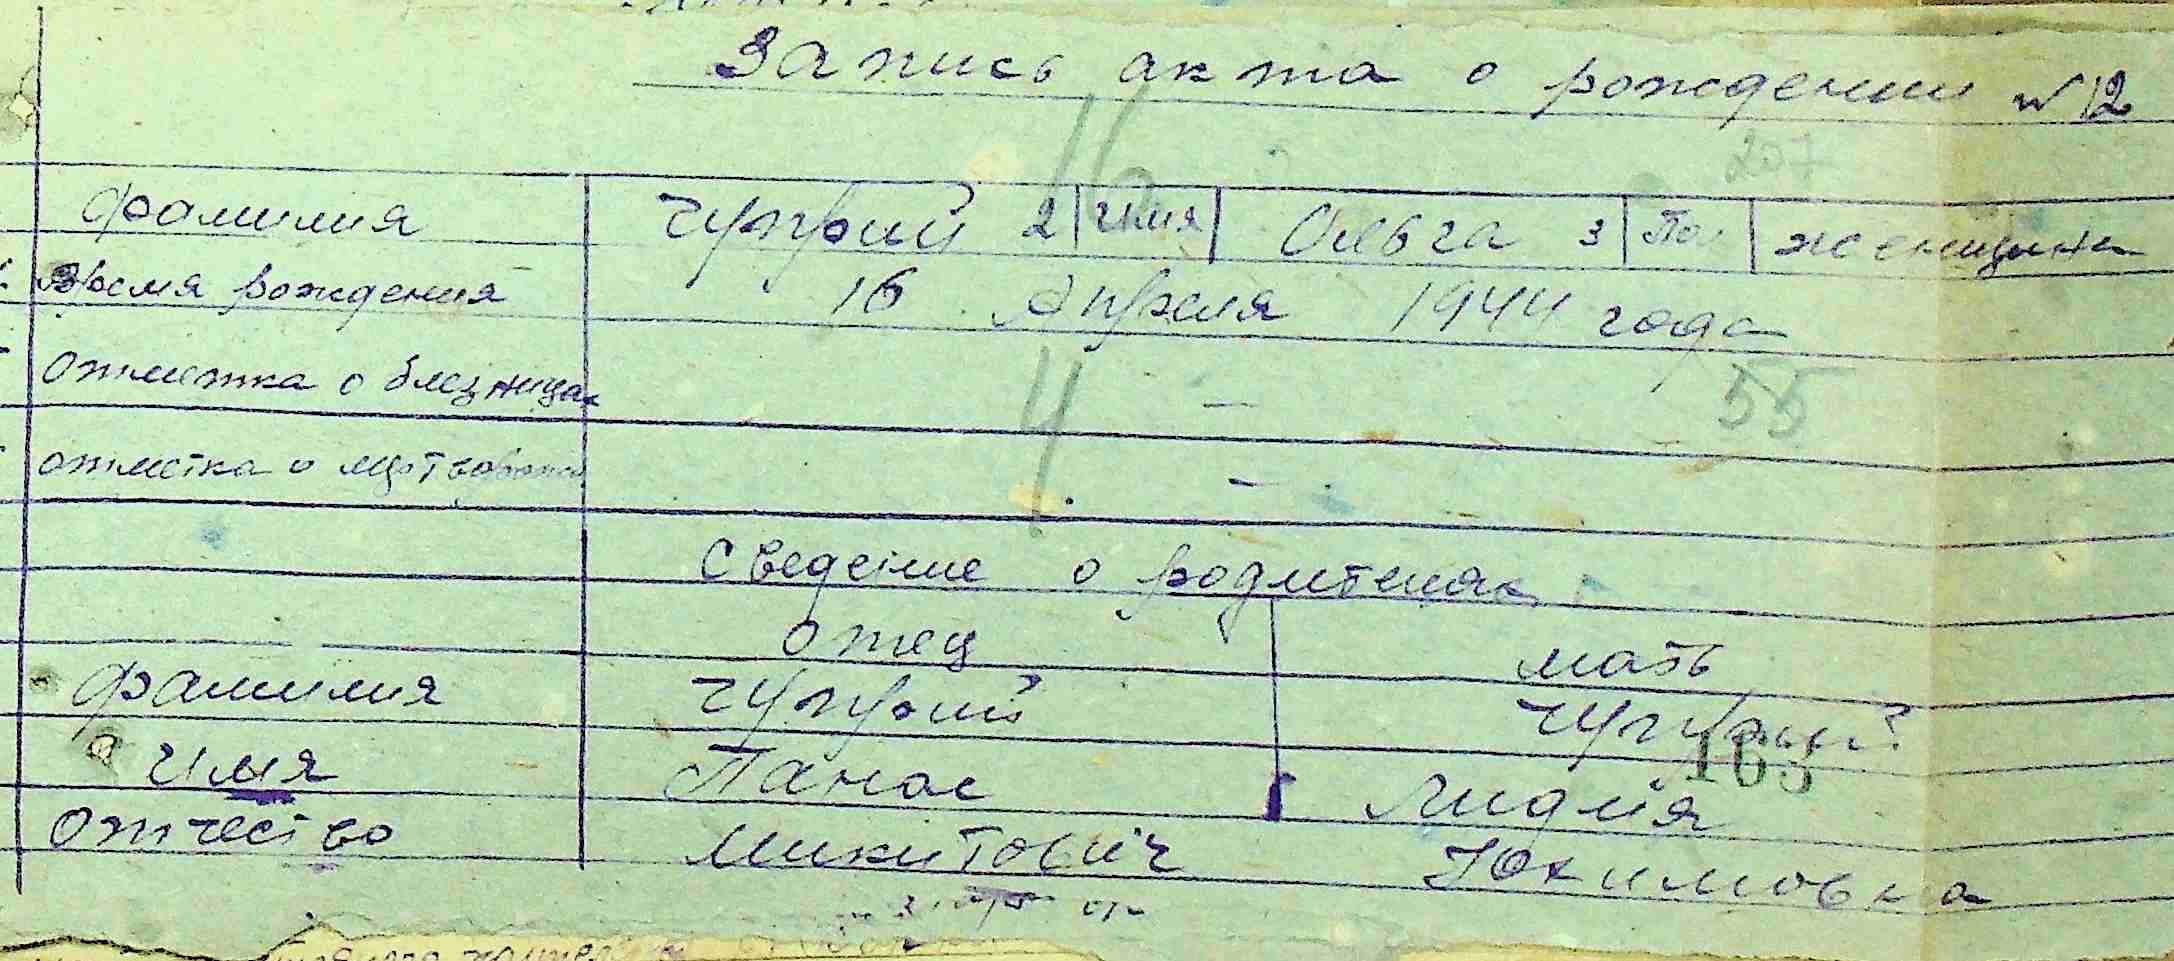 Запись акта о рождении №12
207
Фамилия Чуприй 2 Имя Ольга 3 Пол женщина
Время рождения 16 Апреля 1944 года
отметка о близнецах — 55
отметка о —
Сведение о родителях
отец мать
Фамилия Чуприй Чуприй
163
Имя Панас Лидия
отчество Микитович Юхимовна